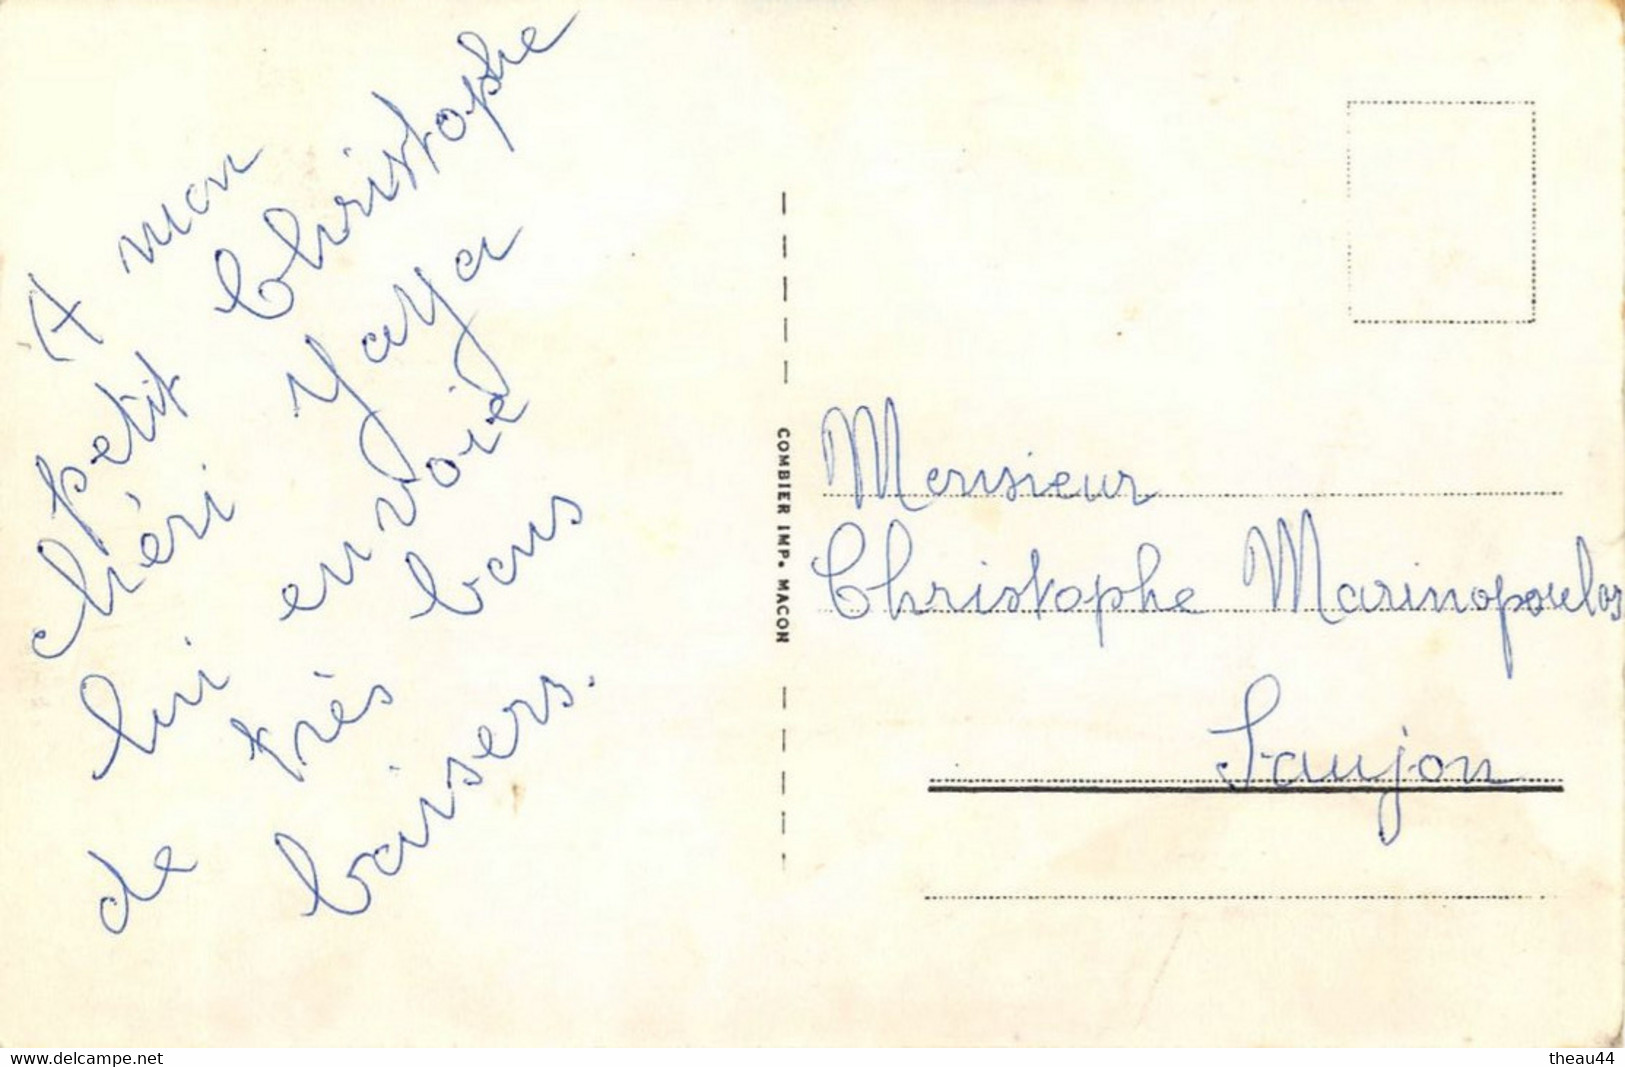 A mon
petit Christophe
chéri Yaya
lui envoie
de très bons
baisers.
COMBIER IMP. MACON
Monsieur
Christophe Marinopoulos
Saujon
www.delcampe.net
theau44